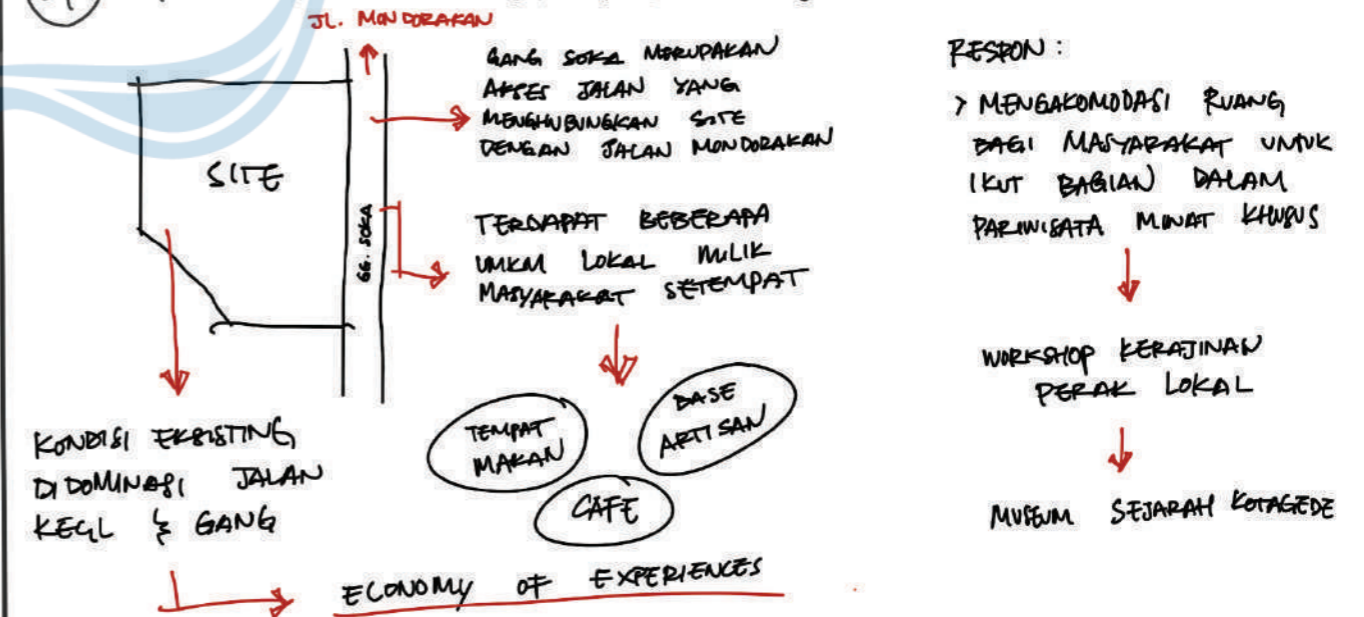 JL. MONDORAKAN
SITE
GG. SOKA
GANG SOKA MERUPAKAN
AKSES JALAN YANG
MENGHUBUNGKAN SITE
DENGAN JALAN MONDORAKAN
TERDAPAT BEBERAPA
UMKM LOKAL MILIK
MASYARAKAT SETEMPAT
TEMPAT
MAKAN
BASE
ARTISAN
CAFE
KONDISI EKSISTING
DIDOMINASI JALAN
KECIL & GANG
ECONOMY OF EXPERIENCES
RESPON :
> MENGAKOMODASI RUANG
BAGI MASYARAKAT UNTUK
IKUT BAGIAN DALAM
PARIWISATA MINAT KHUSUS
WORKSHOP KERAJINAN
PERAK LOKAL
MUSEUM SEJARAH KOTAGEDE